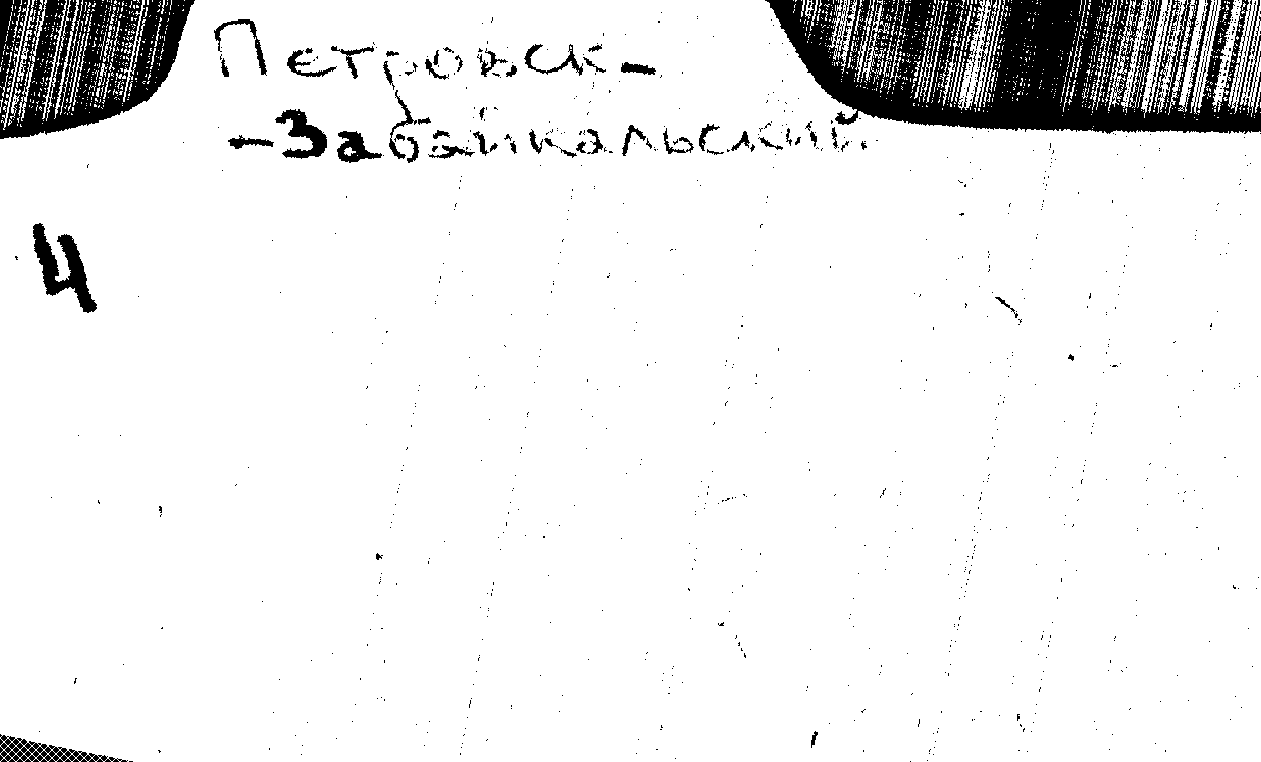 Петровск-
-Забайкальский
4